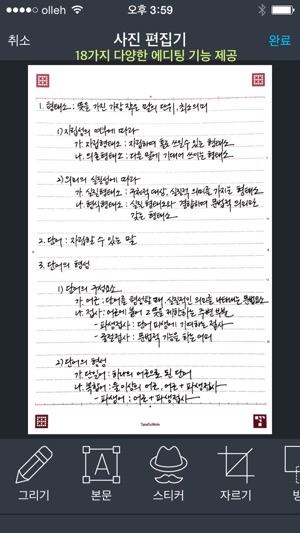 olleh 오후 3:59
취소 사진 편집기 완료
18가지 다양한 에디팅 기능 제공
1. 형태소 : 뜻을 가진 가장 작은 말의 단위, 최소의미
1) 자립성의 여부에 따라
가. 자립형태소 : 자립하여 홀로 쓰일수 있는 형태소
나. 의존형태소 : 다른 말에 기대어 쓰이는 형태소
2) 의미의 실질성에 따라
가. 실질형태소 : 구체적 대상, 실질적 의미를 가지는 형태소
나. 형식형태소 : 실질형태소와 결합하여 문법적 의미만
갖는 형태소
2. 단어 : 자립할 수 있는 말
3. 단어의 형성
1) 단어의 구성요소
가. 어근 : 단어를 형성할 때, 실질적인 의미를 나타내는 중심요소
나. 접사 : 어근에 붙어 그 뜻을 제한하는 주변 부분
- 파생접사 : 단어 파생에 기여하는 접사
- 굴절접사 : 문법적 기능을 하는 어미
2) 단어의 형성
가. 단일어 : 하나의 어근으로 된 단어
나. 복합어 : 둘 이상의 어근, 어근 + 파생접사
- 파생어 : 어근 + 파생접사
TakeOutNote
그리기 본문 스티커 자르기